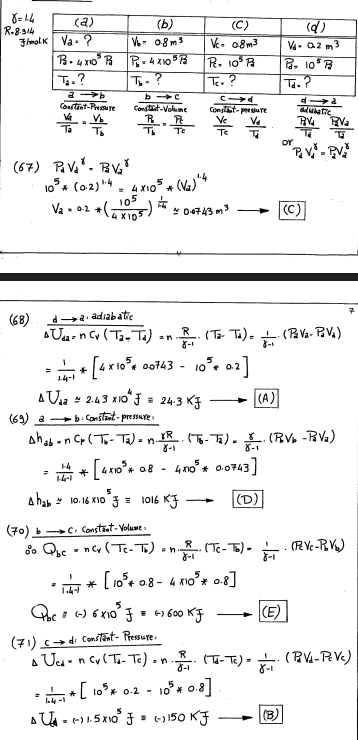 γ=1.4
R=8.314 J/mol.K
(a) (b) (C) (d)
Va = ? Vb = 0.8m³ Vc = 0.8m³ Vd = 0.2 m³
Pa = 4×10⁵ Pa Pb = 4×10⁵ Pa Pc = 10⁵ Pa Pd = 10⁵ Pa
Ta = ? Tb = ? Tc = ? Td = ?
a → b b → c c → d d → a
Constant-Pressure Constant-Volume Constant-pressure adiabatic
Va/Ta = Vb/Tb Pb/Tb = Pc/Tc Vc/Tc Vd/Td PdVd/Td PaVa/Ta
or
PdVd^γ = PaVa^γ
(67) PdVd^γ = PaVa^γ
10⁵ * (0.2)^1.4 = 4×10⁵ * (Va)^1.4
Va = 0.2 * (10⁵/4×10⁵)^(1/1.4) ≃ 0.0743 m³ → (C)
7
(68) d → a : adiabatic
ΔUda = n Cv (Ta - Td) = n · R/γ-1 · (Ta - Td) = 1/γ-1 · (PaVa - PdVd)
= 1/1.4-1 * [4×10⁵ * 0.0743 - 10⁵ * 0.2]
ΔUda ≃ 2.43 ×10⁴ J ≡ 24.3 KJ → (A)
(69) a → b : Constant-pressure:
Δhab = n Cp (Tb - Ta) = n · γR/γ-1 · (Tb - Ta) = γ/γ-1 · (PbVb - PaVa)
= 1.4/1.4-1 * [4×10⁵ * 0.8 - 4×10⁵ * 0.0743]
Δhab ≃ 10.16×10⁵ J ≡ 1016 KJ → (D)
(70) b → C : Constant-Volume:
∴ Qbc = n Cv (Tc - Tb) = n · R/γ-1 · (Tc - Tb) = 1/γ-1 · (PcVc - PbVb)
= 1/1.4-1 * [10⁵ * 0.8 - 4×10⁵ * 0.8]
Qbc ≡ (-) 6×10⁵ J ≡ (-) 600 KJ → (E)
(71) c → d : Constant-Pressure:
ΔUcd = n Cv (Td - Tc) = n · R/γ-1 · (Td - Tc) = 1/γ-1 · (PdVd - PcVc)
= 1/1.4-1 * [10⁵ * 0.2 - 10⁵ * 0.8]
ΔUcd = (-) 1.5×10⁵ J ≡ (-) 150 KJ → (B)